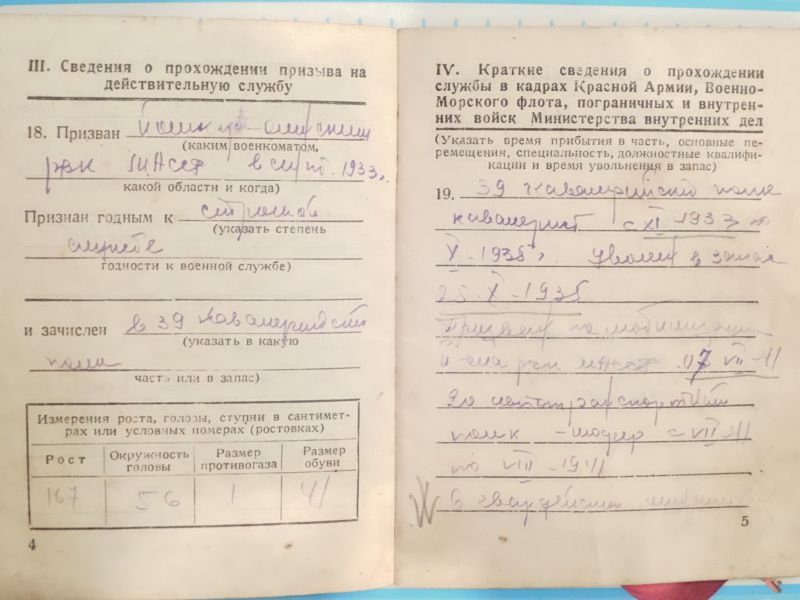 III. Сведения о прохождении призыва на
действительную службу
18. Призван
(каким военкоматом,
рвк в 1933 г.
какой области и когда)
Признан годным к строевой
(указать степень
службе
годности к военной службе)
и зачислен в 39 Кавалерийский
(указать в какую
полк
часть или в запас)
Измерения роста, головы, ступни в сантимет-
рах или условных номерах (ростовках)
Рост Окружность головы Размер противогаза Размер обуви
167 56 1 41
4
IV. Краткие сведения о прохождении
службы в кадрах Красной Армии, Военно-
Морского флота, пограничных и внутрен-
них войск Министерства внутренних дел
(Указать время прибытия в часть, основные пе-
ремещения, специальность, должностные квалифи-
кации и время увольнения в запас)
19. 39 Кавалерийский полк
кавалерист с XI-1933 по
X-1935г. Уволен в запас
25.X-1935
Призван по мобилизации
рвк 07 VII 41
20 мототранспортный
полк - шофер с VII-41
по VIII-1941
В гвардейский
5